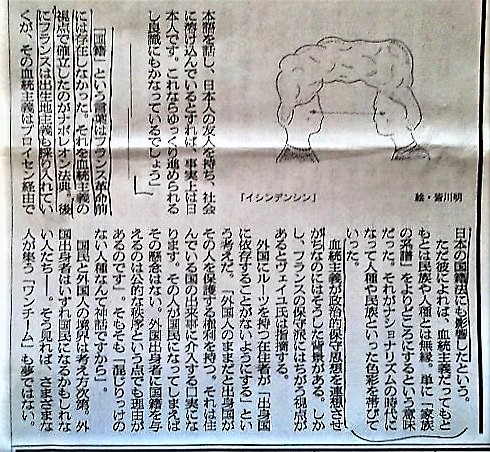 絵・皆川明
「イシンデンシン」
本語を話し、日本人の友人を持ち、社会
に溶け込んでいるとすれば、事実上は日
本人です。これならゆっくり進められる
し良識にもかなっているでしょう」
「国籍」という言葉はフランス革命前
には存在しなかった。それを血統主義の
視点で確立したのがナポレオン法典。後
にフランスは出生地主義も採り入れてい
くが、その血統主義はプロイセン経由で
日本の国籍法にも影響したという。
ただ彼によれば、血統主義だってもと
もとは民族や人種とは無縁。単に「家族
の系譜」をよりどころにするという意味
だった。それがナショナリズムの時代に
なって人種や民族といった色彩を帯びて
いった。
血統主義が政治的保守思想を連想させ
がちなのにはそうした背景がある。しか
し、フランスの保守派にはちがう視点が
あるとヴェイユ氏は指摘する。
外国にルーツを持つ在住者が「出身国
に依存することがないようにする」とい
う考えだ。「外国人のままだと出身国が
その人を保護する権利を持つ。それは住
んでいる国の出来事に介入する口実にな
ります。その人が国民になってしまえば
その懸念はない。外国出身者に国籍を与
えるのは公的な秩序という点でも理由が
あるのです」。そもそも「混じりっけの
ない人種なんて神話ですから」。
国民と外国人の境界は考え方次第。外
国出身者はいずれ国民になるかもしれな
い人たち――。そう見れば、さまざまな
人が集う「ワンチーム」も夢ではない。